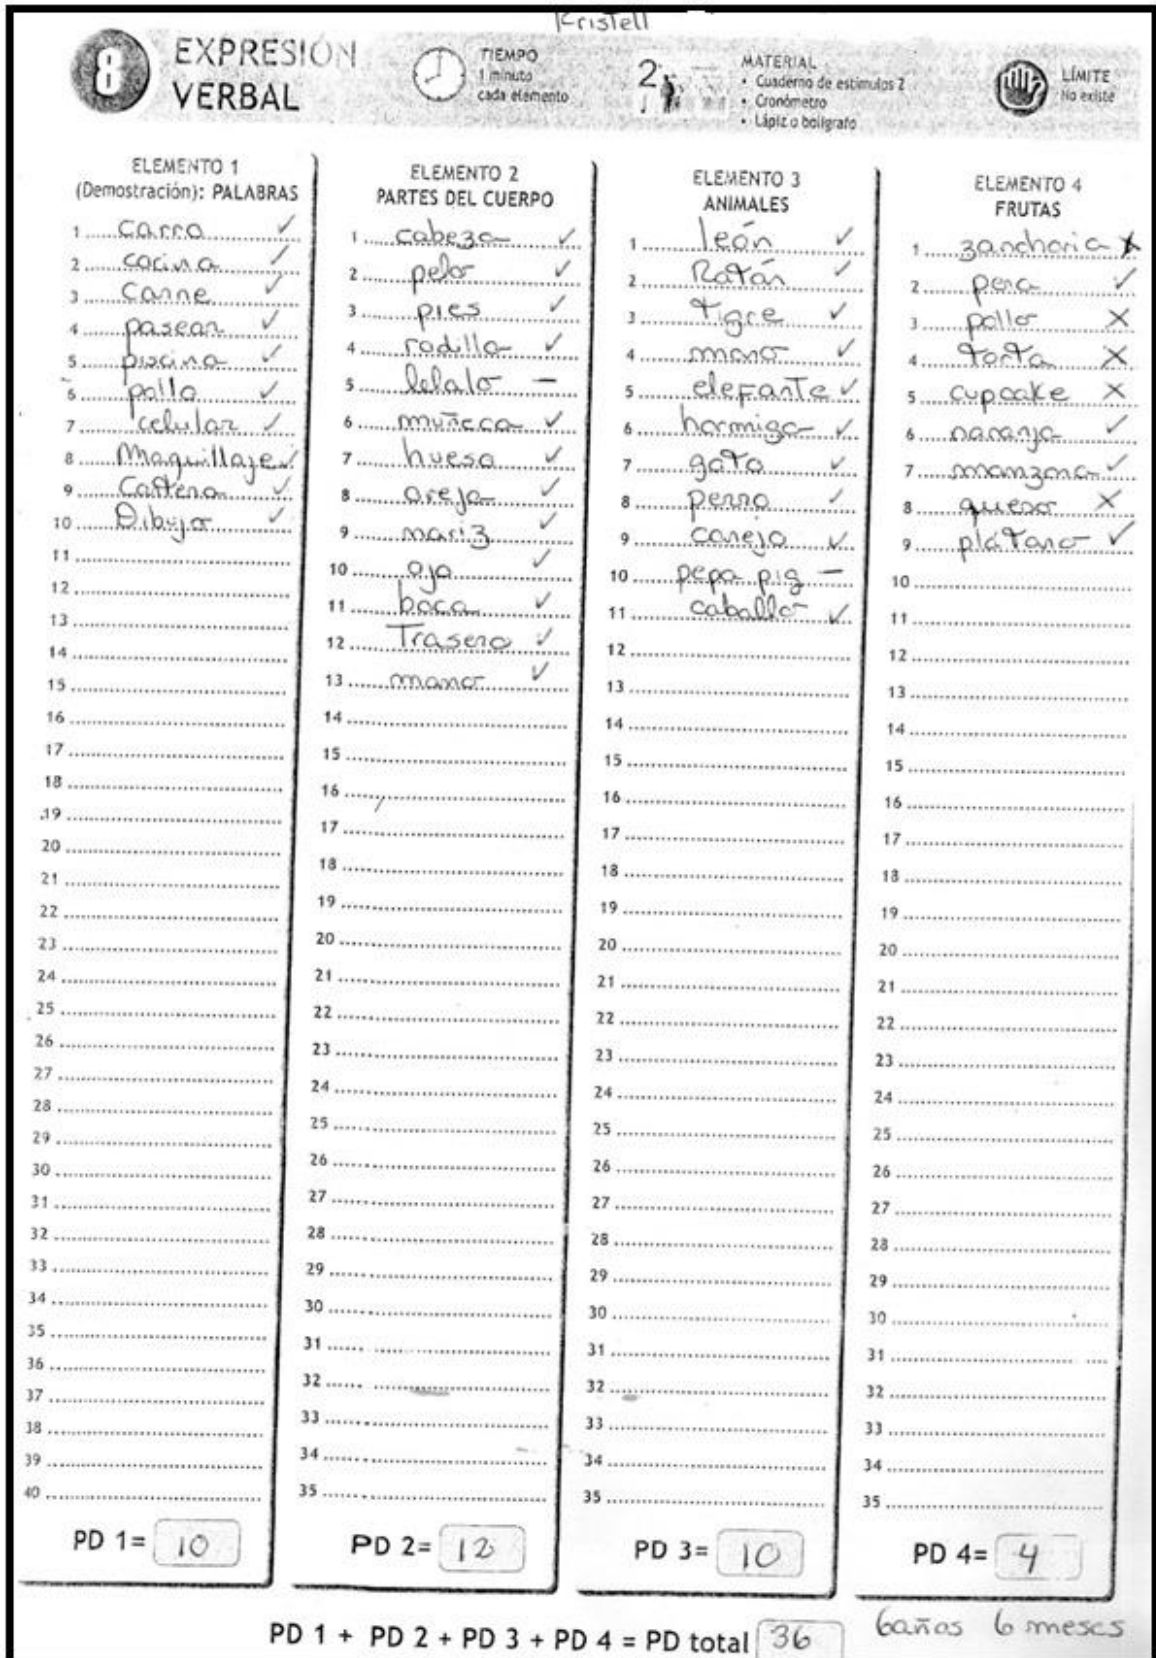 Kristell
8 EXPRESIÓN
VERBAL
TIEMPO
1 minuto
cada elemento
2
MATERIAL
• Cuaderno de estímulos 2
• Cronómetro
• Lápiz o bolígrafo
LÍMITE
No existe
ELEMENTO 1
(Demostración): PALABRAS
1 carro ✓
2 cocina ✓
3 carne ✓
4 pasear ✓
5 piscina ✓
6 pollo ✓
7 celular ✓
8 Maquillaje ✓
9 Cartera ✓
10 Dibujo ✓
11
12
13
14
15
16
17
18
19
20
21
22
23
24
25
26
27
28
29
30
31
32
33
34
35
36
37
38
39
40
PD 1= 10
ELEMENTO 2
PARTES DEL CUERPO
1 cabeza ✓
2 pelo ✓
3 pies ✓
4 rodilla ✓
5 lelalo –
6 muñeca ✓
7 hueso ✓
8 oreja ✓
9 nariz ✓
10 ojo ✓
11 boca ✓
12 Trasero ✓
13 mano ✓
14
15
16
17
18
19
20
21
22
23
24
25
26
27
28
29
30
31
32
33
34
35
PD 2= 12
ELEMENTO 3
ANIMALES
1 león ✓
2 Ratón ✓
3 tigre ✓
4 mono ✓
5 elefante ✓
6 hormiga ✓
7 gato ✓
8 perro ✓
9 conejo ✓
10 pepa pig –
11 caballo ✓
12
13
14
15
16
17
18
19
20
21
22
23
24
25
26
27
28
29
30
31
32
33
34
35
PD 3= 10
ELEMENTO 4
FRUTAS
1 zanahoria X
2 pera ✓
3 pollo X
4 torta X
5 cupcake X
6 naranja ✓
7 manzana ✓
8 queso X
9 plátano ✓
10
11
12
13
14
15
16
17
18
19
20
21
22
23
24
25
26
27
28
29
30
31
32
33
34
35
PD 4= 4
PD 1 + PD 2 + PD 3 + PD 4 = PD total 36
6 años 6 meses